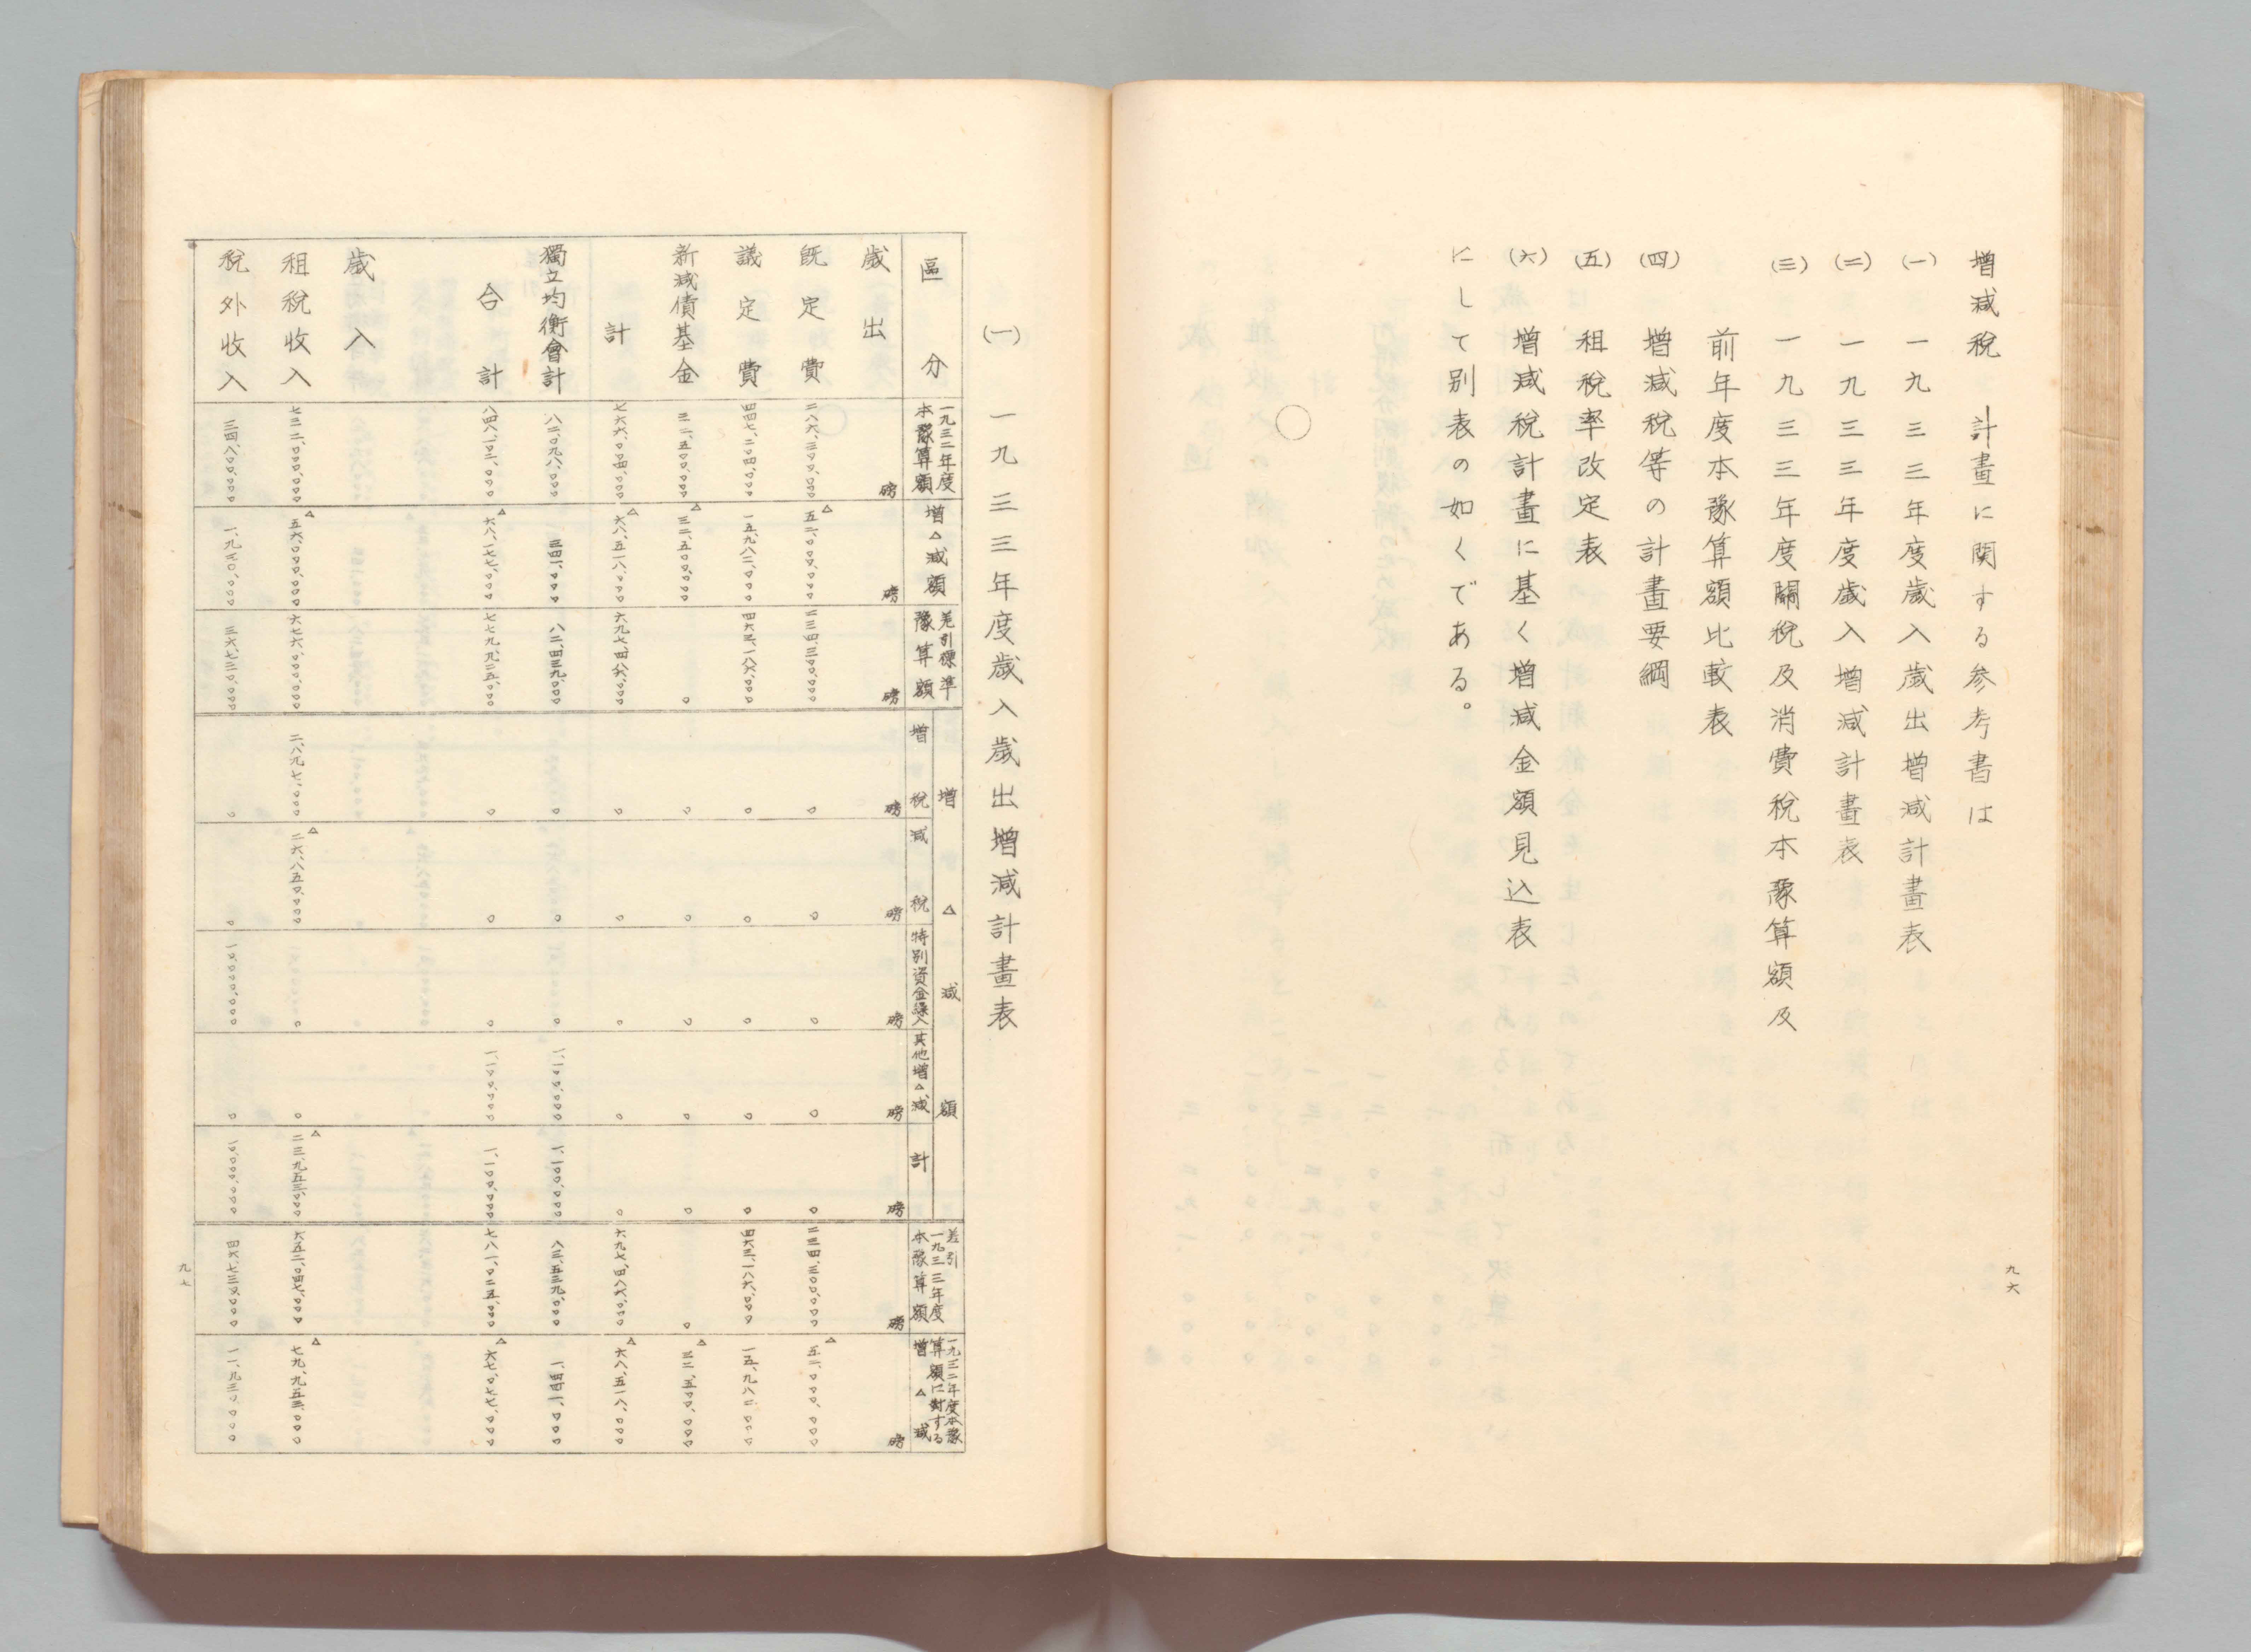 増減税計畫に関する参考書は
(一) 一九三三年度歳入歳出増減計畫表
(二) 一九三三年度歳入増減計畫表
(三) 一九三三年度關税及消費税本豫算額及
前年度本豫算額比較表
(四) 増減税等の計畫要綱
(五) 租税率改定表
(六) 増減税計畫に基く増減金額見込表
にして別表の如くである。
九六
(一) 一九三三年度歳入歳出増減計畫表
區分
一九三二年度本豫算額
増△減額
差引標準豫算額
増△減額
増税
減税
特別資金繰入
其他増△減
計
差引一九三三年度本豫算額
一九三二年度本豫算額に對する増△減
歳出 磅 磅 磅 磅 磅 磅 磅 磅 磅 磅
既定費 二八六、三〇〇、〇〇〇 △五二、〇〇〇、〇〇〇 二三四、三〇〇、〇〇〇 〇 〇 〇 〇 〇 二三四、三〇〇、〇〇〇 △五二、〇〇〇、〇〇〇
議定費 四四七、二〇四、〇〇〇 一五、九八二、〇〇〇 四六三、一八六、〇〇〇 〇 〇 〇 〇 〇 四六三、一八六、〇〇〇 一五、九八二、〇〇〇
新減債基金 三二、五〇〇、〇〇〇 △三二、五〇〇、〇〇〇 〇 〇 〇 〇 〇 〇 〇 △三二、五〇〇、〇〇〇
計 七六六、〇〇四、〇〇〇 △六八、五一八、〇〇〇 六九七、四八六、〇〇〇 〇 〇 〇 〇 〇 六九七、四八六、〇〇〇 △六八、五一八、〇〇〇
獨立均衡會計 八二、〇九八、〇〇〇 三四一、〇〇〇 八二、四三九、〇〇〇 〇 〇 〇 一、一〇〇、〇〇〇 一、一〇〇、〇〇〇 八三、五三九、〇〇〇 一、四四一、〇〇〇
合計 八四八、一〇二、〇〇〇 △六八、一七七、〇〇〇 七七九、九二五、〇〇〇 〇 〇 〇 一、一〇〇、〇〇〇 一、一〇〇、〇〇〇 七八一、〇二五、〇〇〇 △六七、〇七七、〇〇〇
歳入
租税收入 七三二、〇〇〇、〇〇〇 △五六、〇〇〇、〇〇〇 六七六、〇〇〇、〇〇〇 二、八九七、〇〇〇 △二六、八五〇、〇〇〇 〇 〇 △二三、九五三、〇〇〇 六五二、〇四七、〇〇〇 △七九、九五三、〇〇〇
税外收入 三四、八〇〇、〇〇〇 一、九三〇、〇〇〇 三六、七三〇、〇〇〇 〇 〇 一〇、〇〇〇、〇〇〇 〇 一〇、〇〇〇、〇〇〇 四六、七三〇、〇〇〇 一一、九三〇、〇〇〇
九七